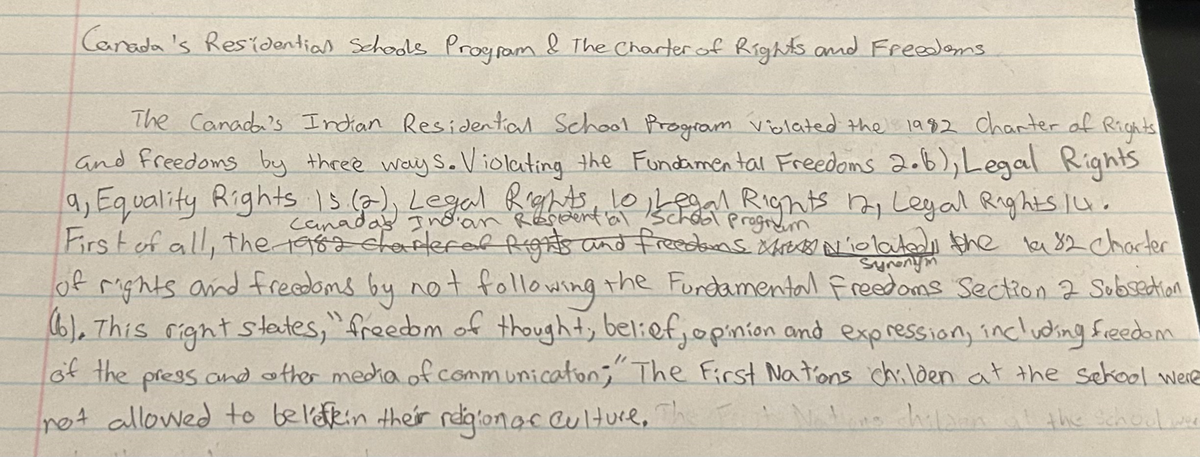 Canada's Residential Schools Program & The Charter of Rights and Freedoms
The Canada's Indian Residential School Program violated the 1982 Charter of Rights
and freedoms by three ways. Violating the Fundamental Freedoms 2.b), Legal Rights
9, Equality Rights 15.(2), Legal Rights 10, Legal Rights 12, Legal Rights 14.
Canada's Indian Residential School Program
First of all, the 1982 charter of Rights and freedoms violated the 1982 charter
synonym
of rights and freedoms by not following the Fundamental Freedoms Section 2 Subsection
(b). This right states, "freedom of thought, belief, opinion and expression, including freedom
of the press and other media of communication;" The First Nations childen at the school were
not allowed to belief in their religion or culture. The First Nations children at the school were